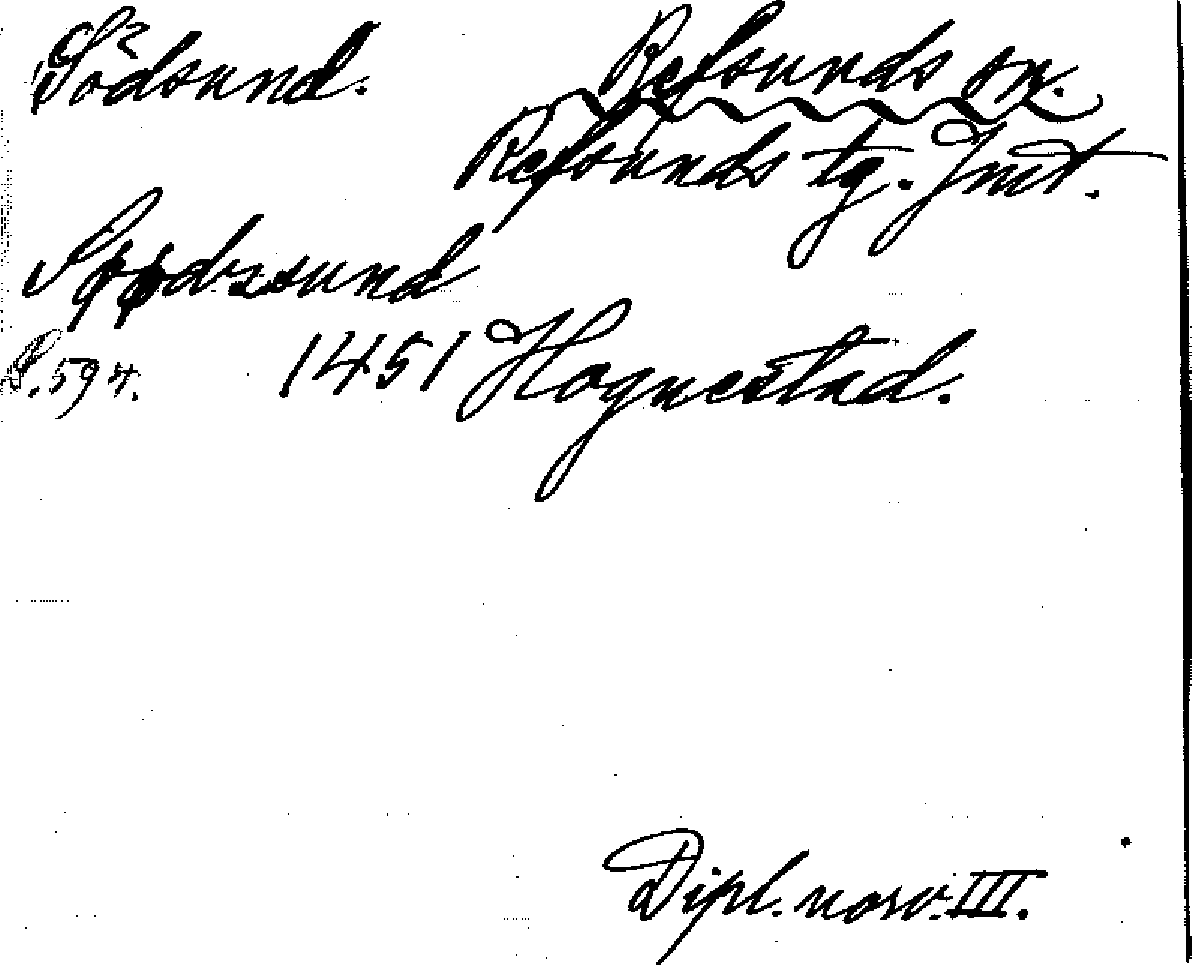 Södsund. Refsunds sn.
Refsunds tg. Jmt.
Søødzsund
S. 594. 1451 Hognestad.
Dipl. norv. III.